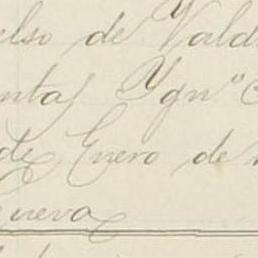 elso de Vald
enta Ygn.º C
de Enero de
Cueva